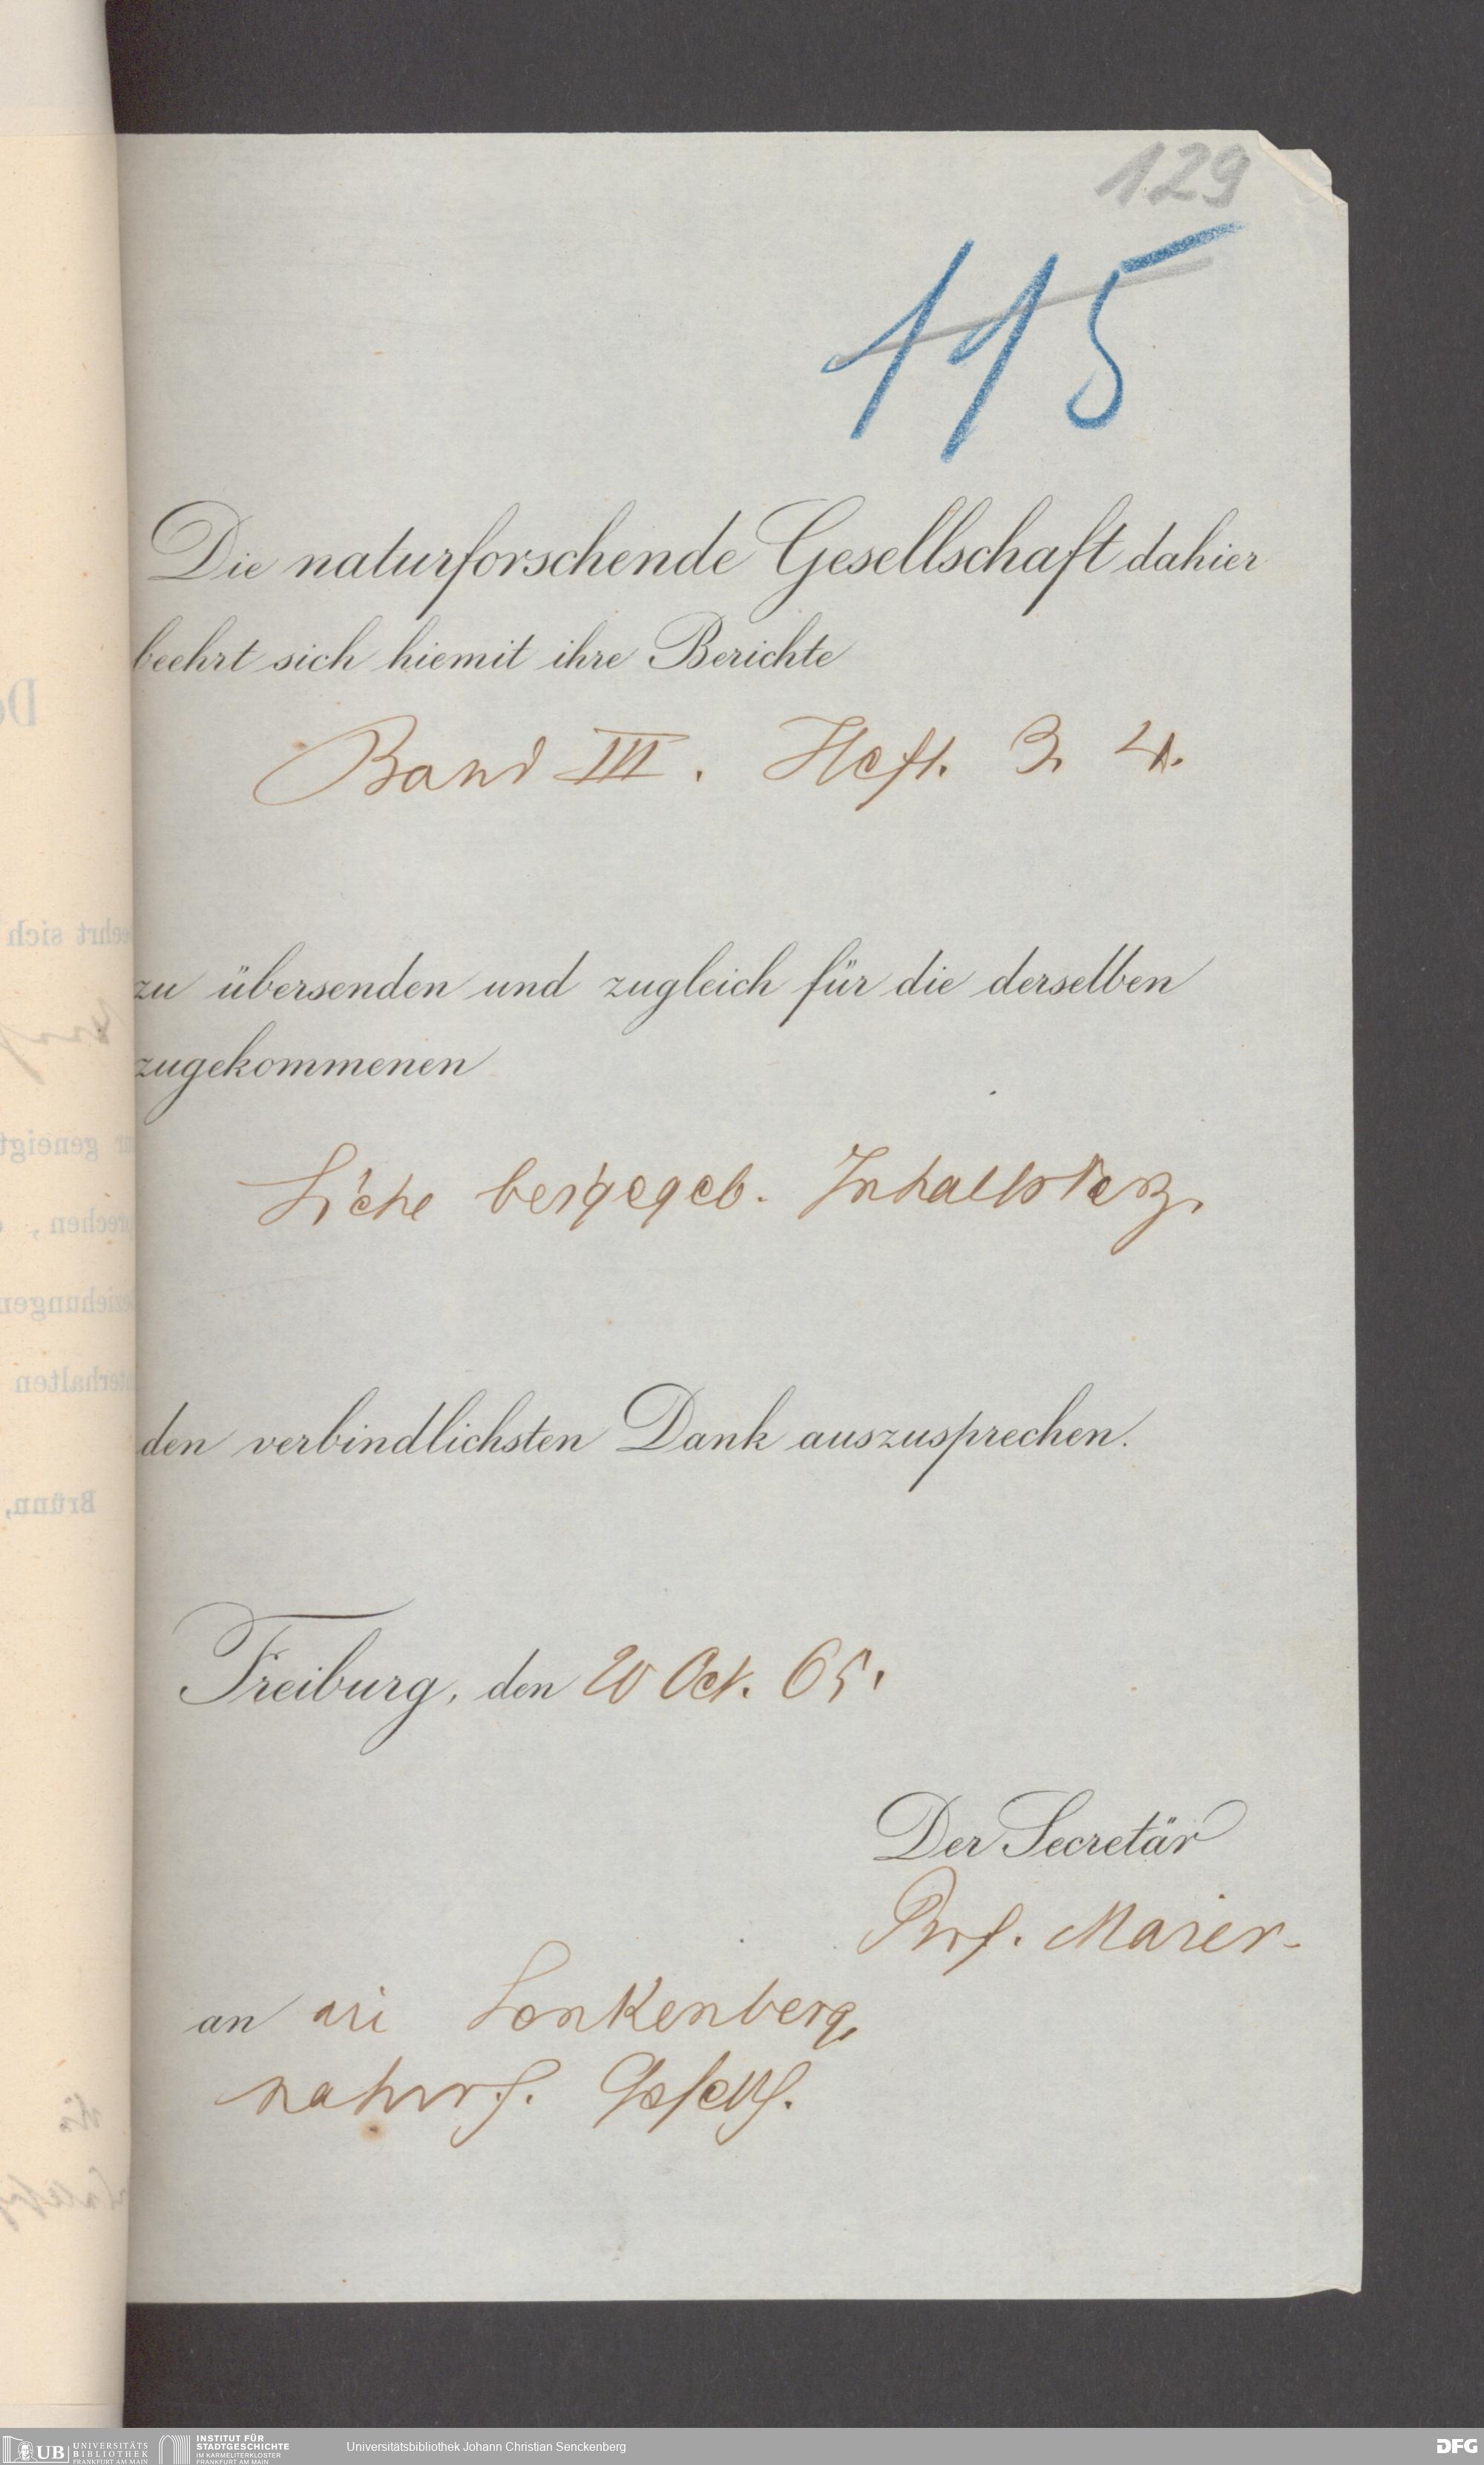 129
195
Die naturforschende Gesellschaft dahier
beehrt sich hiemit ihre Berichte
Band III. Heft. 3. 4.
zu übersenden und zugleich für die derselben
zugekommenen
Siehe beigegeb. Inhaltsverz.
den verbindlichsten Dank auszusprechen.
Freiburg, den 20 Oct. 65.
Der Secretär
Prof. Maier
an die Senkenberg.
naturf. Gesellsch.
UB UNIVERSITÄTS BIBLIOTHEK FRANKFURT AM MAIN
INSTITUT FÜR STADTGESCHICHTE IM KARMELITERKLOSTER FRANKFURT AM MAIN
Universitätsbibliothek Johann Christian Senckenberg
DFG